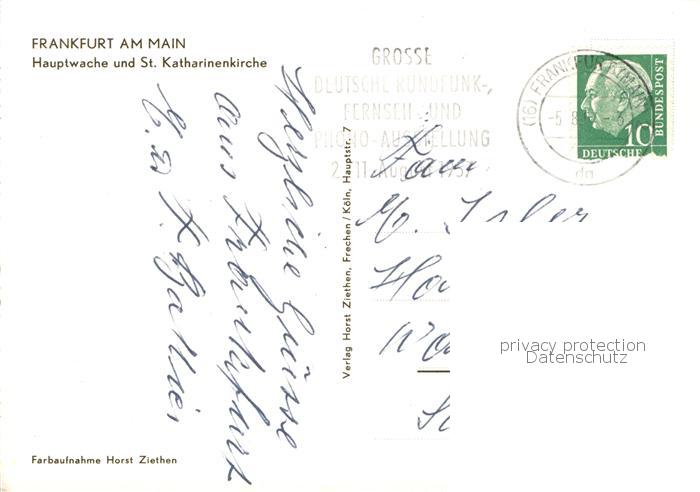 FRANKFURT AM MAIN
Hauptwache und St. Katharinenkirche
Herzliche Grüsse
aus Frankfurt
Farbaufnahme Horst Ziethen
Verlag Horst Ziethen, Frechen/Köln, Hauptstr. 7
GROSSE
DEUTSCHE RUNDFUNK-,
FERNSEH- UND
PHONO-AUSSTELLUNG
2.-11. August 1957
(16) FRANKFURT (MAIN)
-5.8.
da
10
DEUTSCHE
BUNDESPOST
M.
privacy protection
Datenschutz